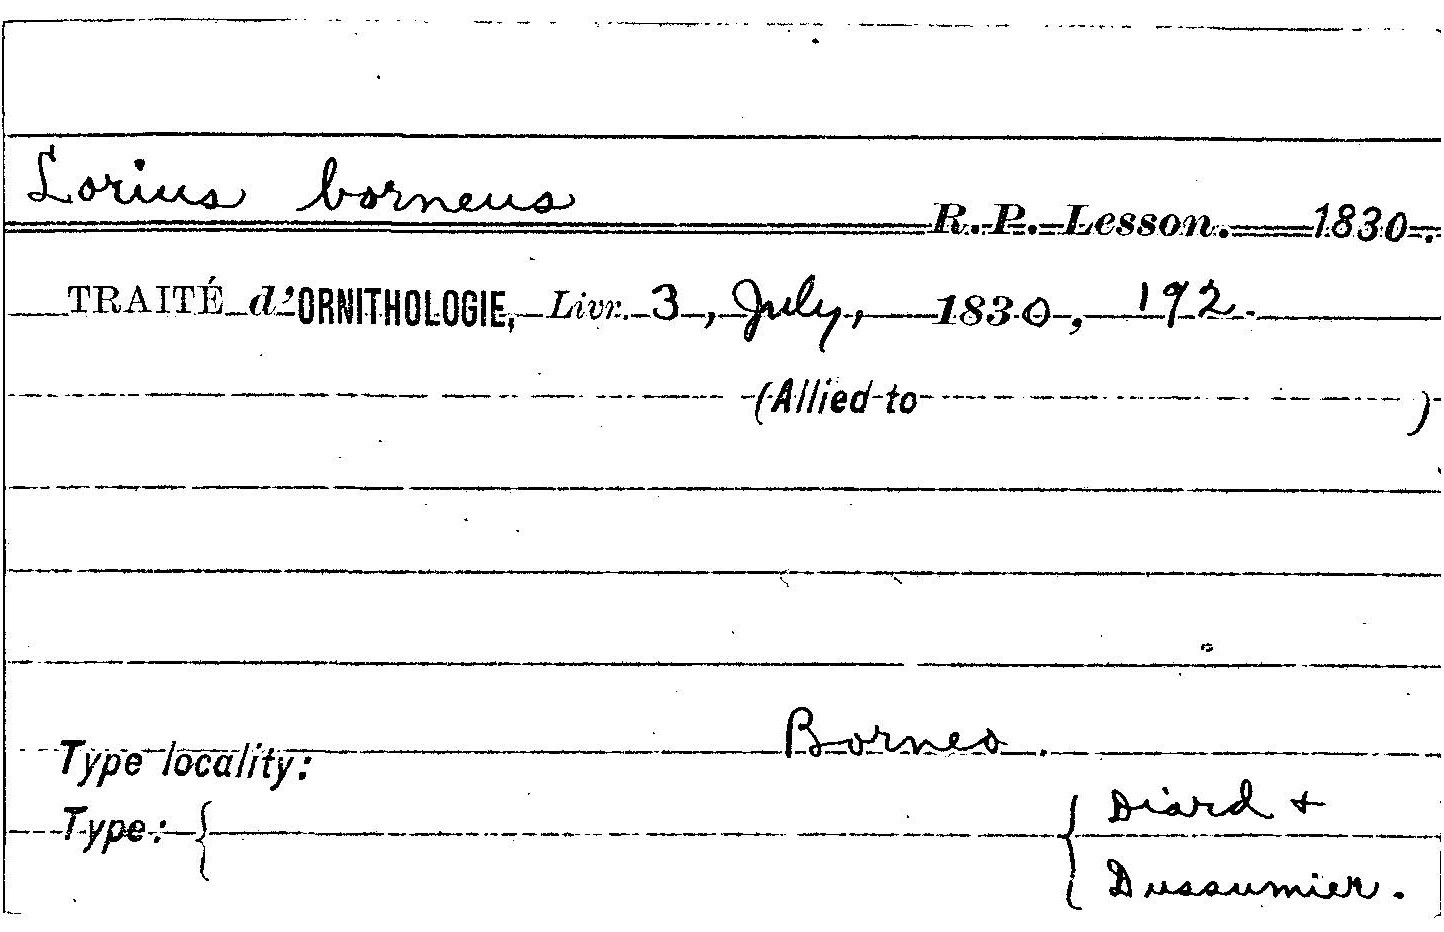 Lorius borneus
R. P. Lesson. 1830.
TRAITÉ d'ORNITHOLOGIE, Livr. 3, July, 1830, 192.
(Allied to )
Type locality: Borneo.
Type: { { Diard +
Dussumier.